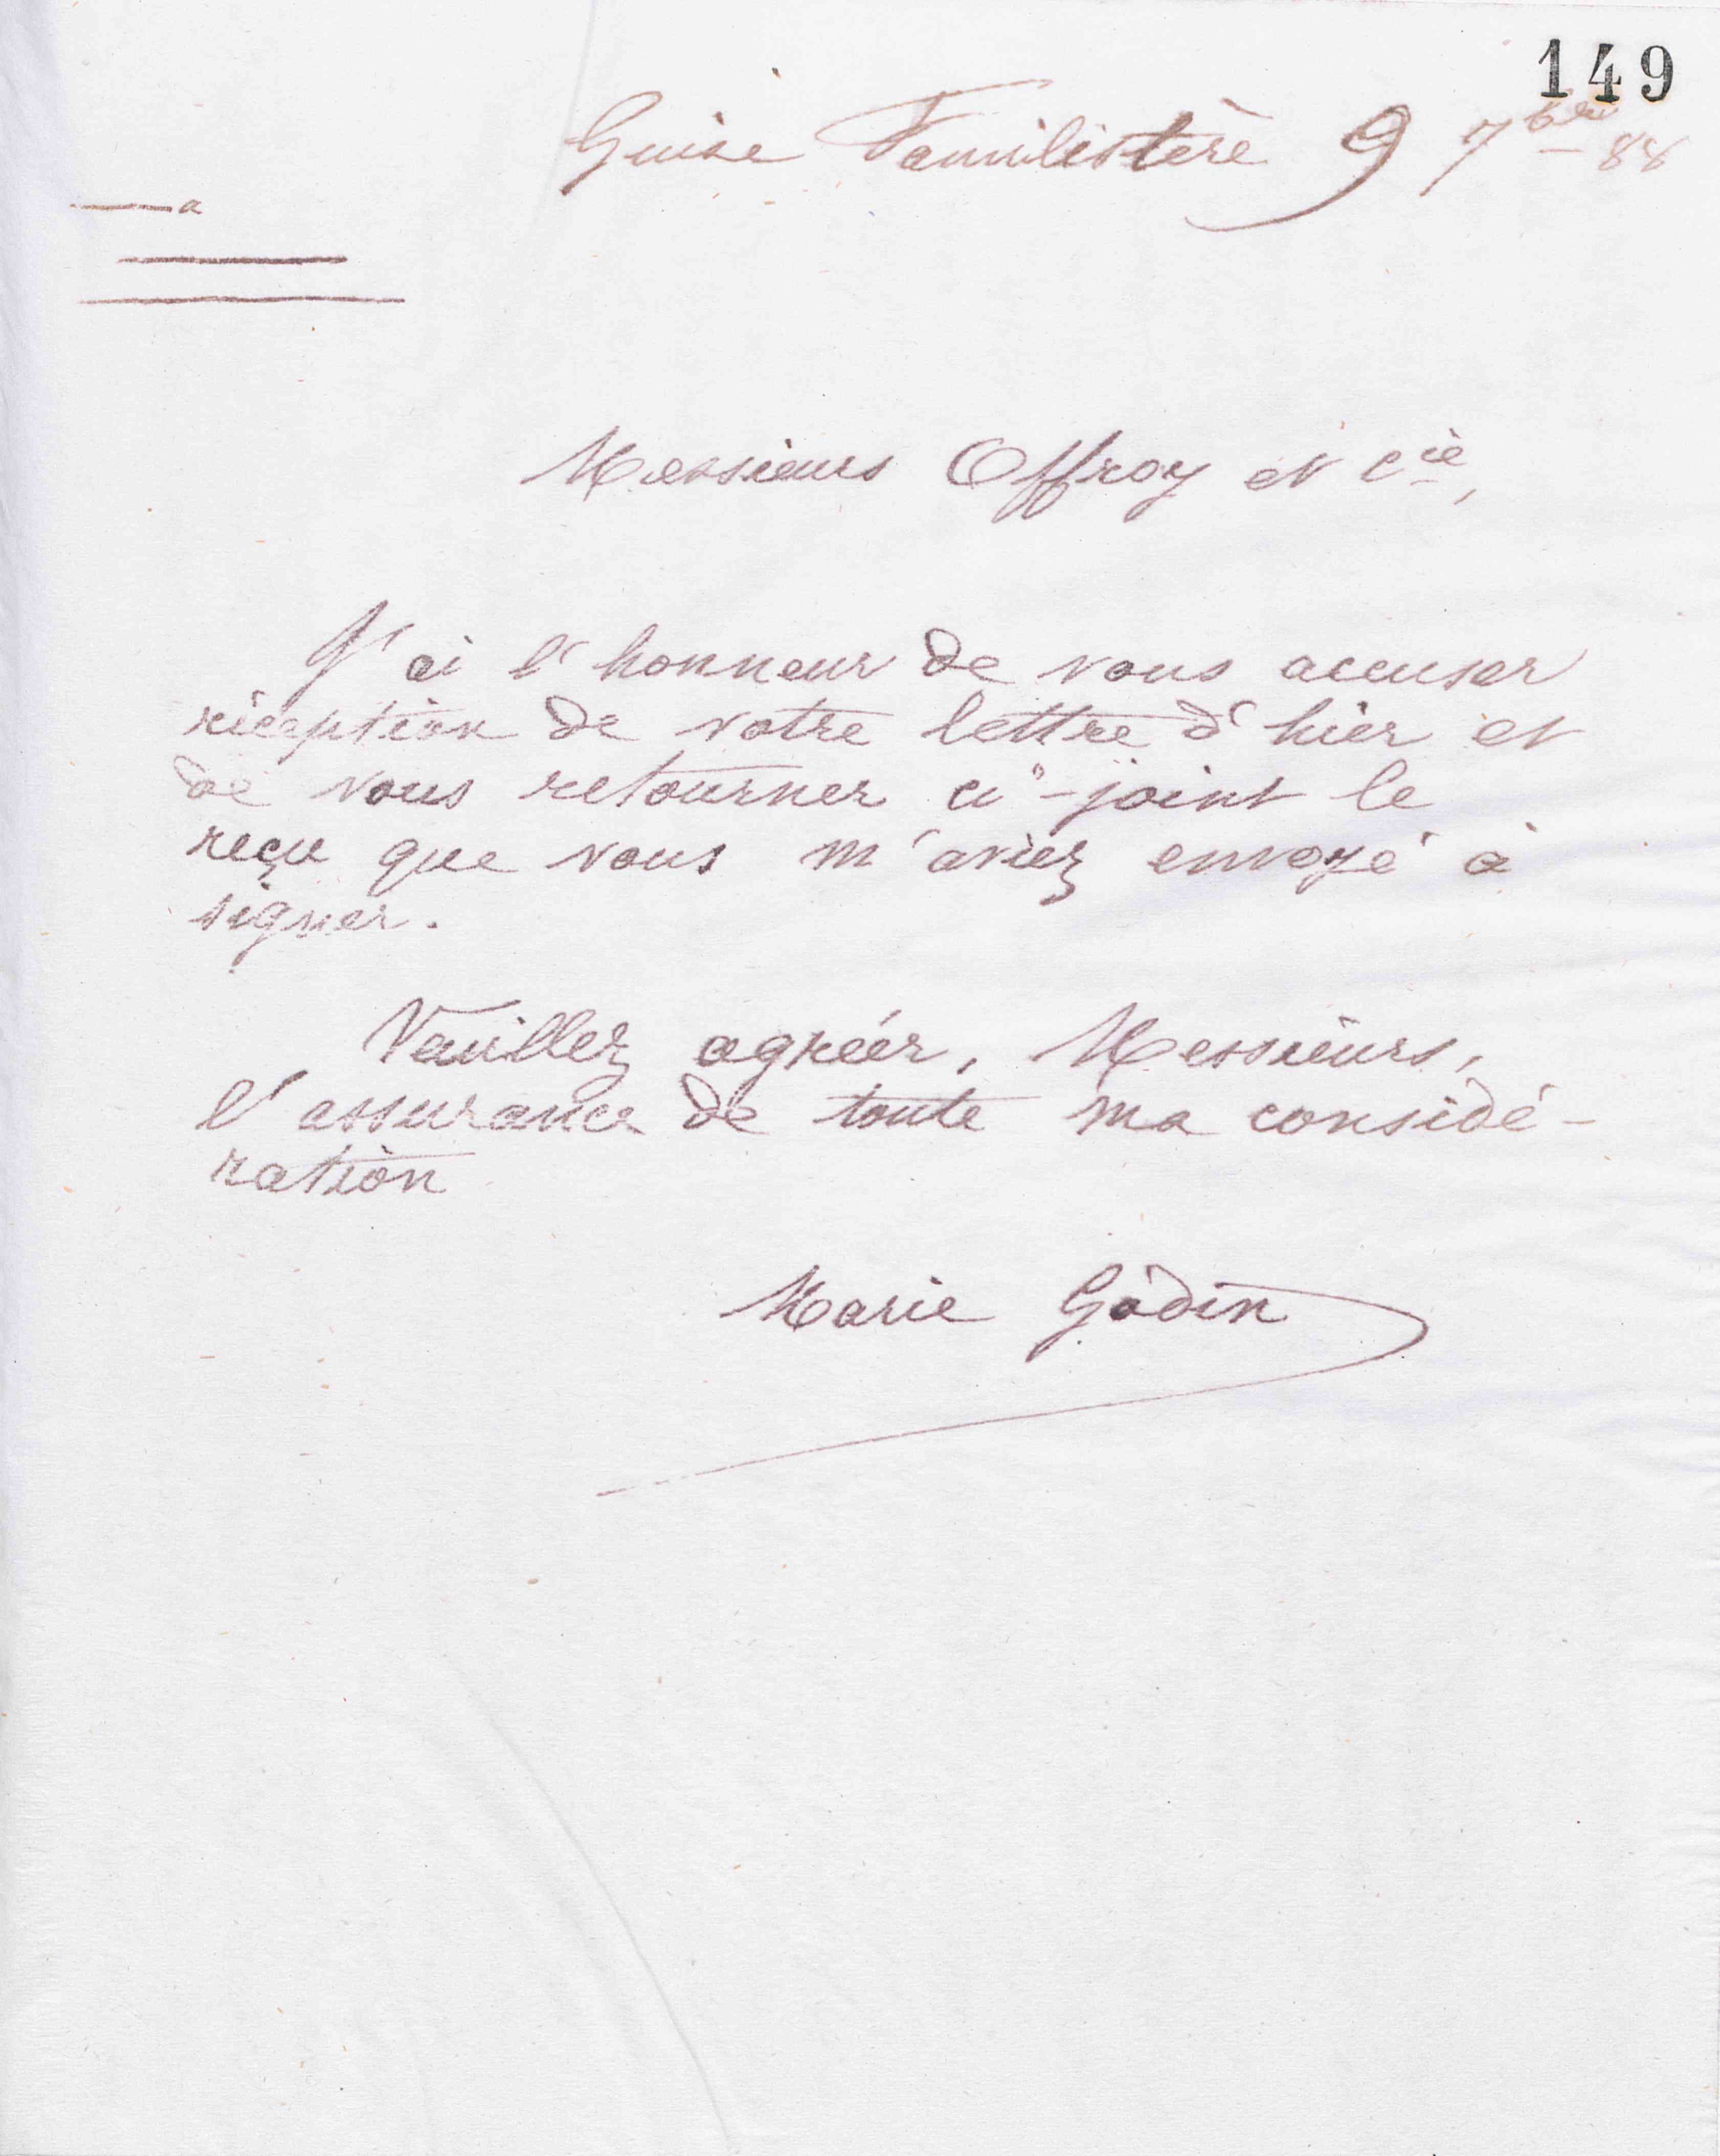 149
Guise Familistère 9 7bre 88
Messieurs Offroy et Cie,
J'ai l'honneur de vous accuser
réception de votre lettre d'hier et
de vous retourner ci-joint le
reçu que vous m'aviez envoyé à
signer.
Veuillez agréer, Messieurs,
l'assurance de toute ma considé-
ration
Marie Godin